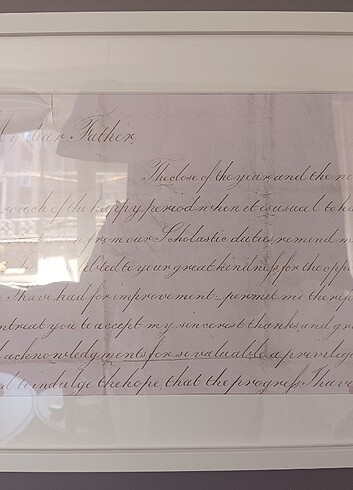 My dear Father,
The close of the year and the ne
proach of the happy period when it is usual to ha
from our Scholastic duties, remind m
ted to your great kindness, for the oppo
I have had for improvement_ permit me there
ntreat you to accept my sincerest thanks, and gra
acknowledgments for so valuable a privilege
d to indulge the hope, that the progress I have